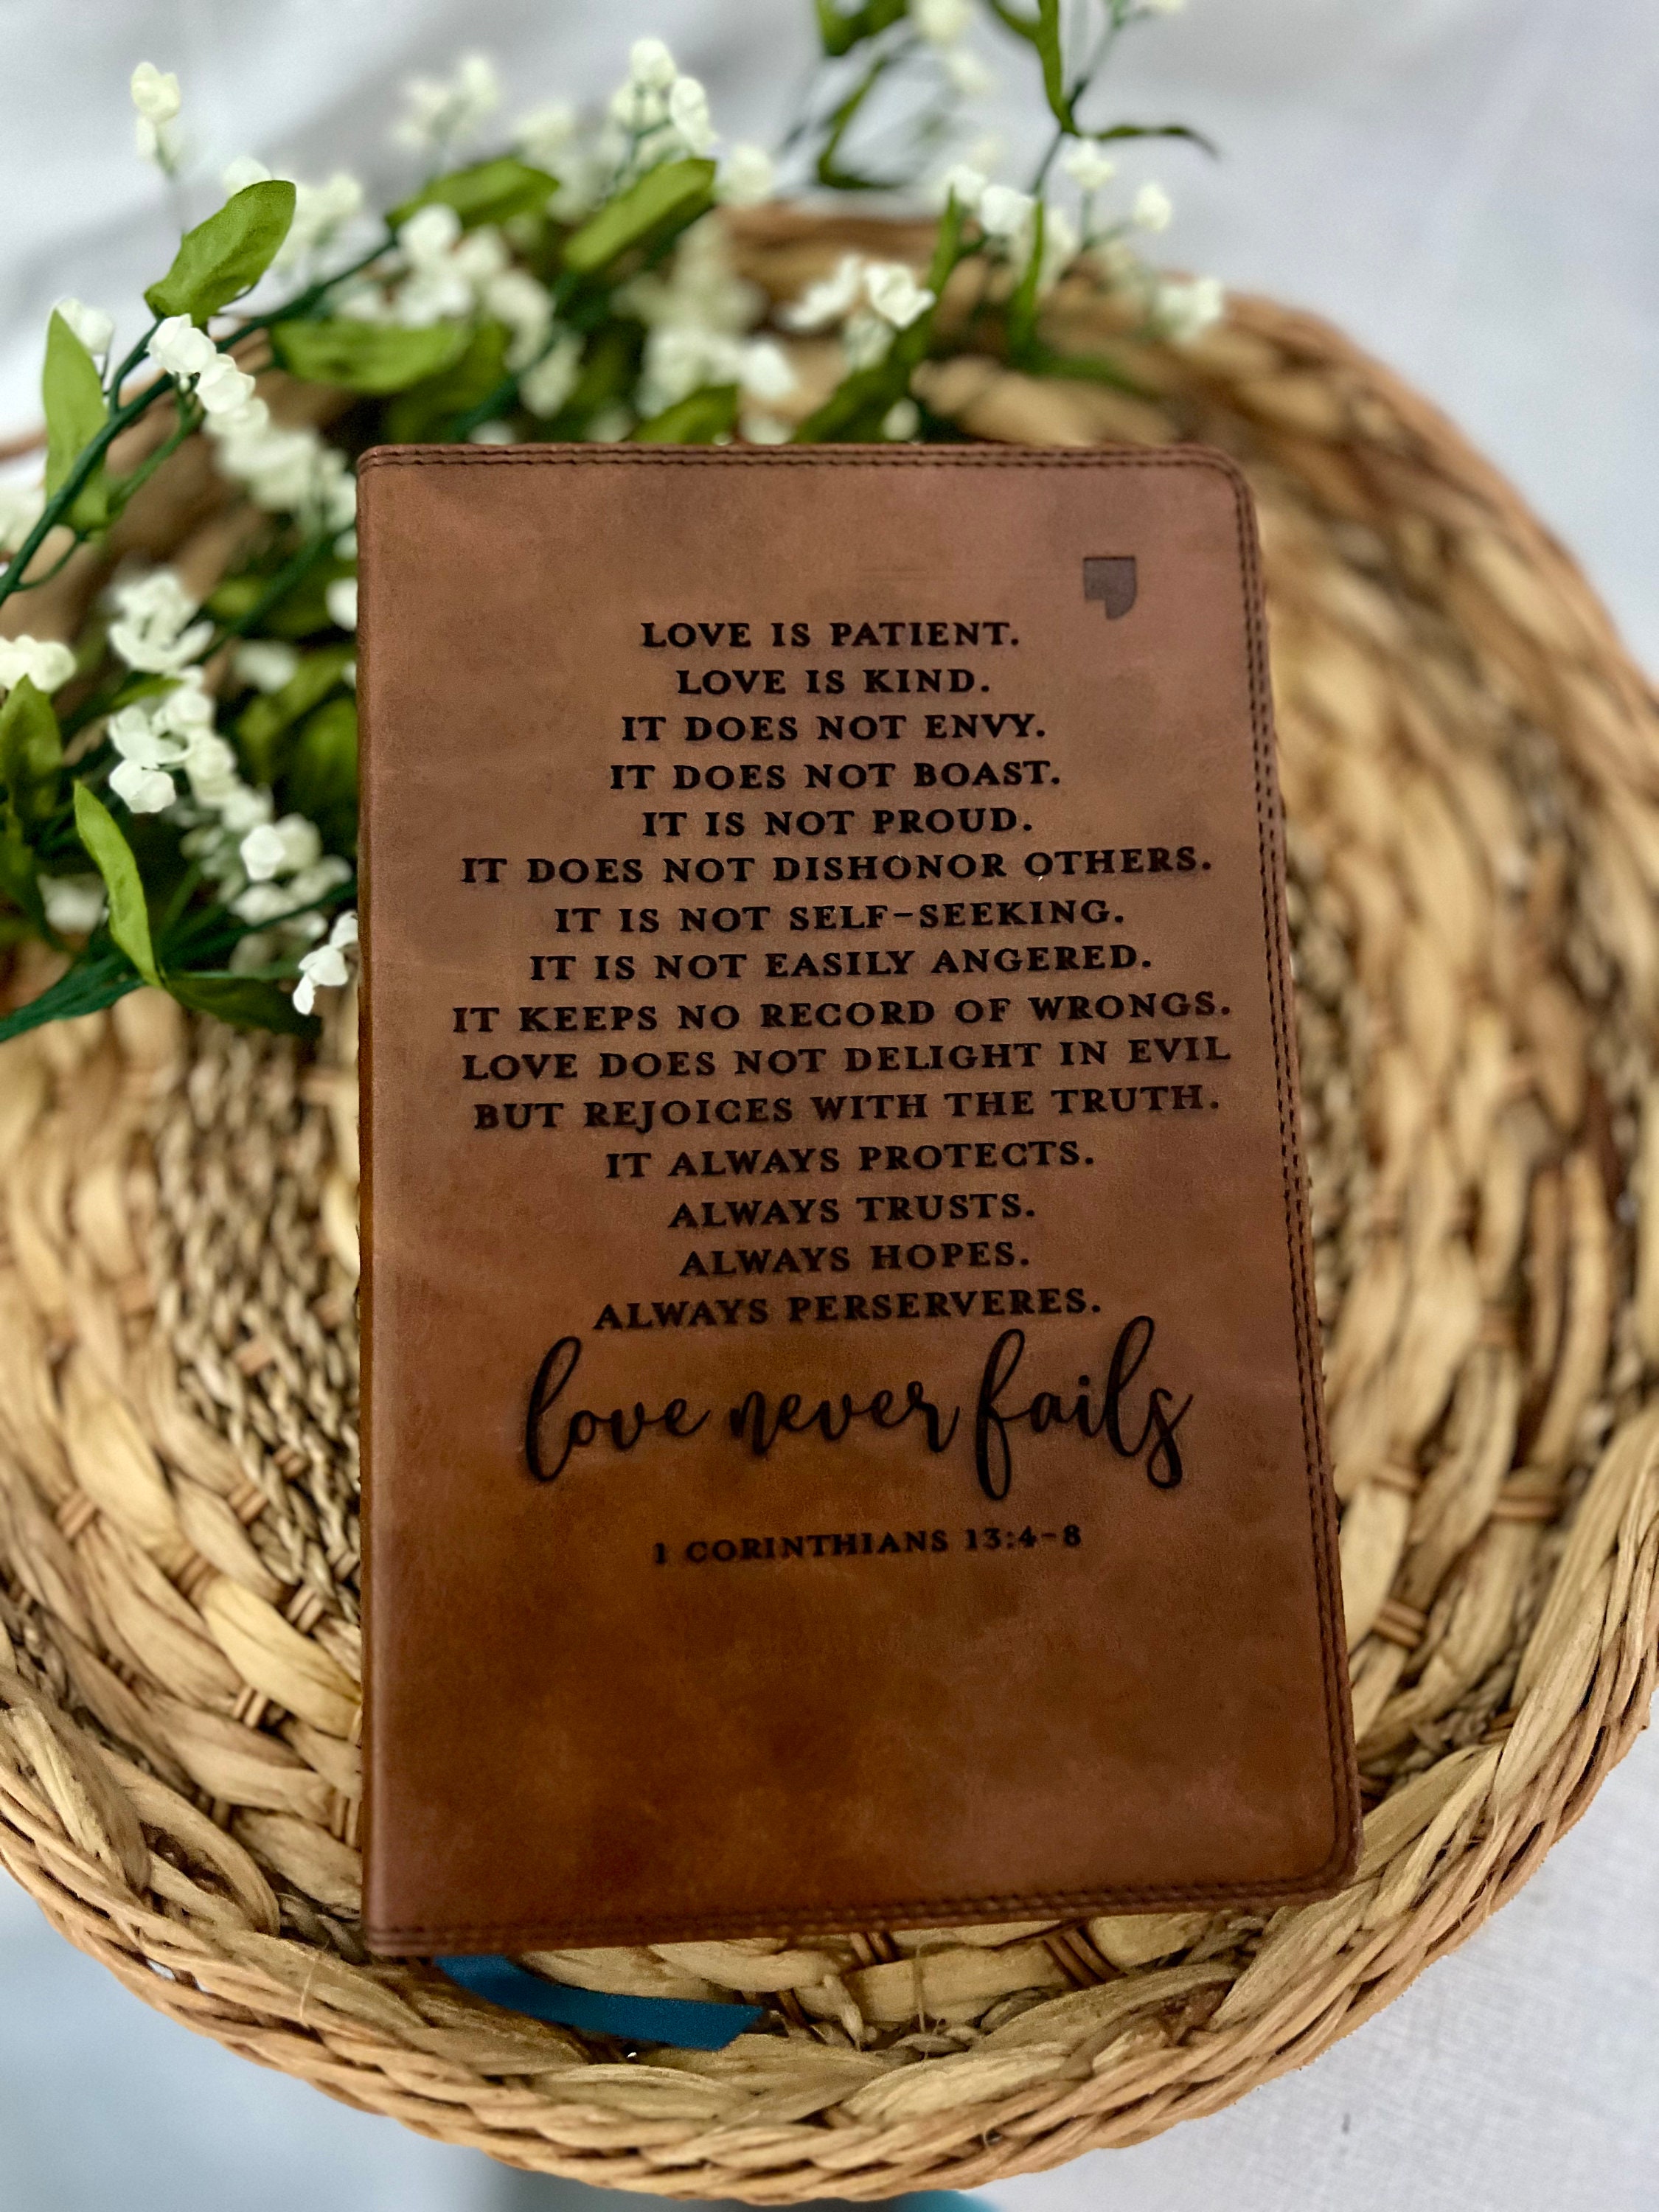 LOVE IS PATIENT.
LOVE IS KIND.
IT DOES NOT ENVY.
IT DOES NOT BOAST.
IT IS NOT PROUD.
IT DOES NOT DISHONOR OTHERS.
IT IS NOT SELF-SEEKING.
IT IS NOT EASILY ANGERED.
IT KEEPS NO RECORD OF WRONGS.
LOVE DOES NOT DELIGHT IN EVIL
BUT REJOICES WITH THE TRUTH.
IT ALWAYS PROTECTS.
ALWAYS TRUSTS.
ALWAYS HOPES.
ALWAYS PERSERVERES.
love never fails
1 CORINTHIANS 13:4-8